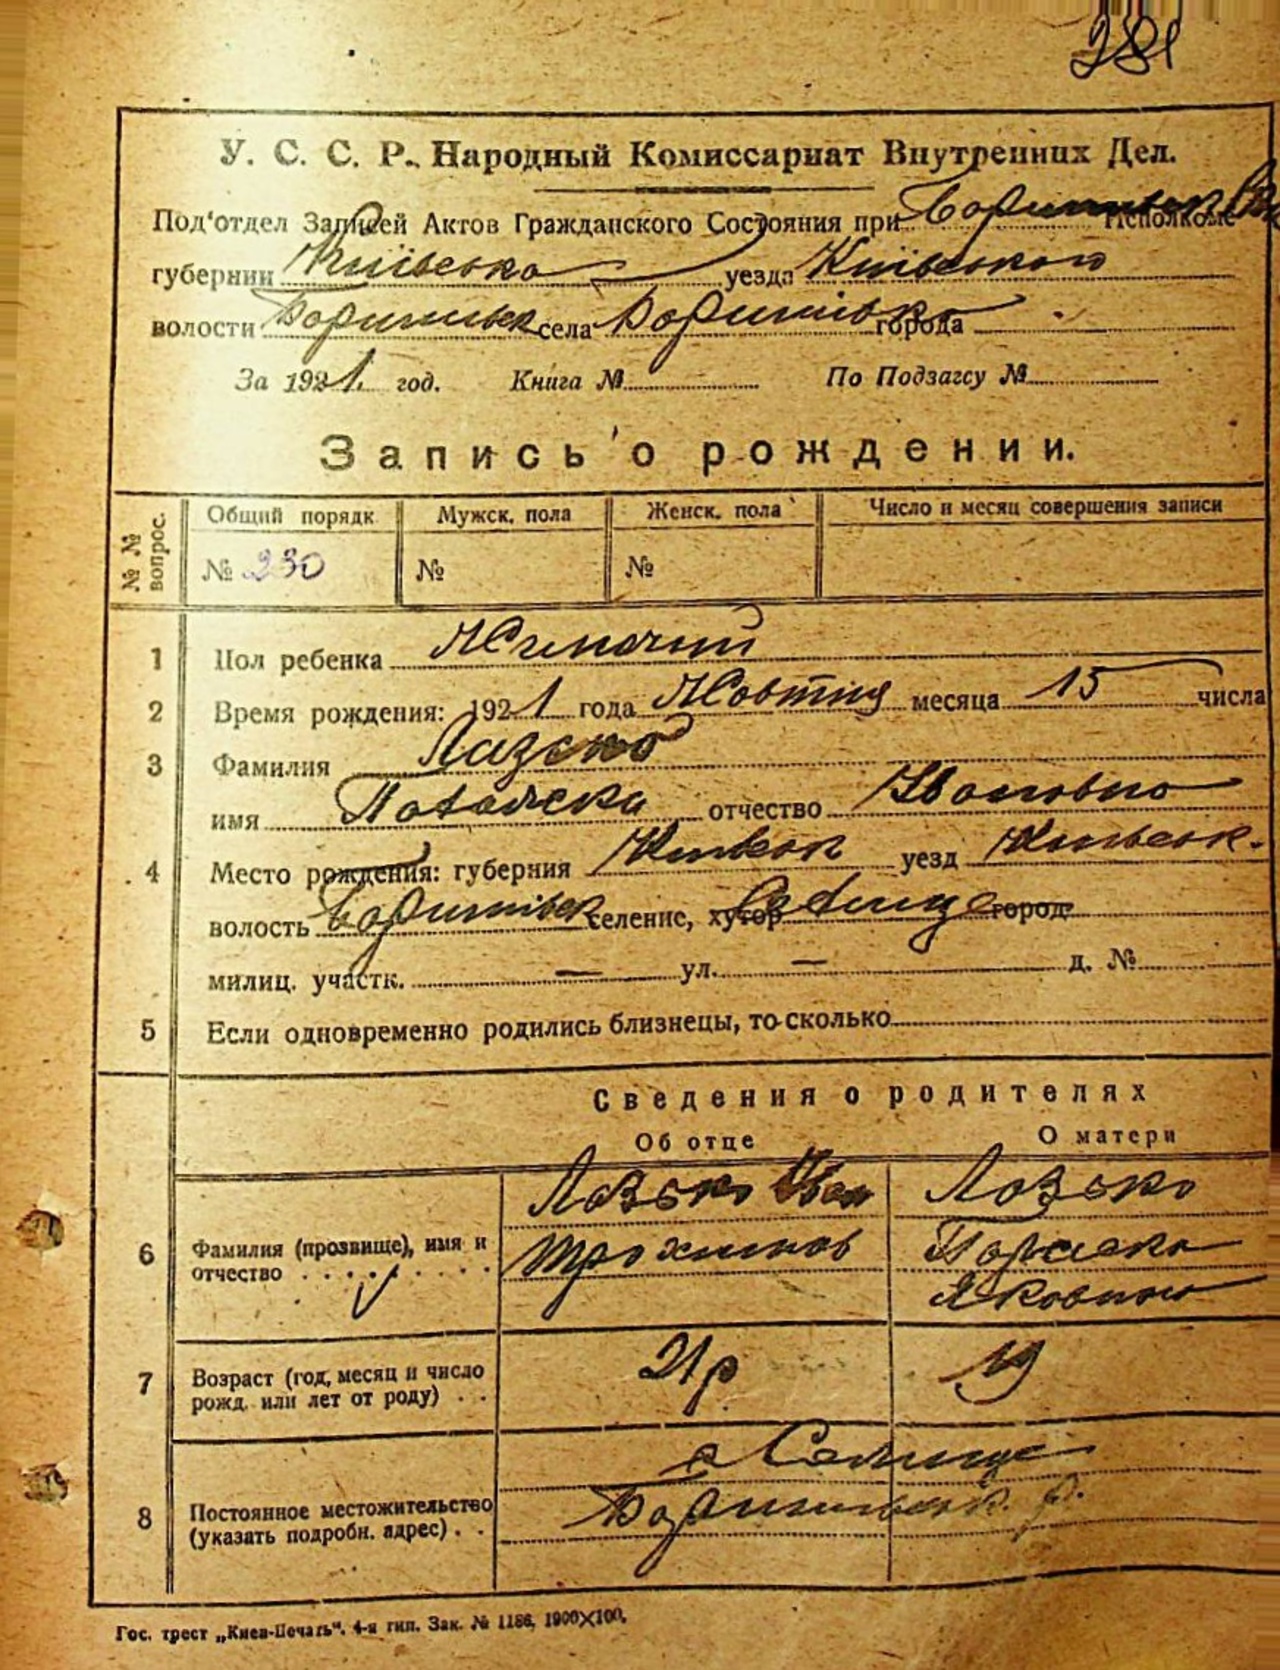 281
У. С. С. Р. Народный Комиссариат Внутренних Дел.
Под'отдел Записей Актов Гражданского Состояния при Исполкоме
губернии Київська уезда Київського
волости села города
За 1921. год. Книга № По Подзагсу №
Запись о рождении.
№ № вопрос.
Общий порядк Мужск. пола Женск. пола Число и месяц совершения записи
№ 230 № №
1 Пол ребенка Жиночий
2 Время рождения: 1921 года Жовтня месяца 15 числа
3 Фамилия Лазько
имя отчество Ивановна
4 Место рождения: губерния уезд
волость селение, хутор Селище город
милиц. участк. — ул. — д. №
5 Если одновременно родились близнецы, то сколько
Сведения о родителях
Об отце О матери
6 Фамилия (прозвище), имя и отчество Лазько Иван Лазько
Параска
7 Возраст (год, месяц и число рожд. или лет от роду) 21 р 19
8 Постоянное местожительство (указать подробн. адрес) с Селище
Гос. трест „Киев-Печать". 4-я тип. Зак. № 1186, 1900×100.